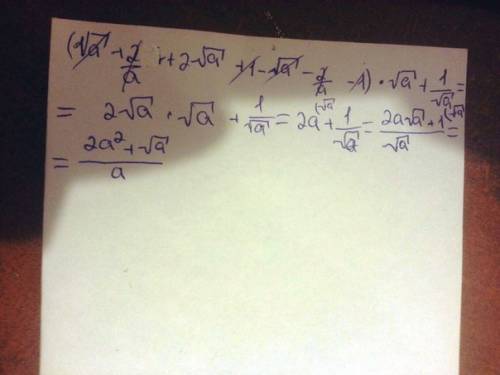 (√a + 2/a + 2√a + 1 - √a - 2/a - 1) · √a + 1/√a =
= 2√a · √a + 1/√a = 2a(√a + 1/√a = 2a√a + 1(√a/√a =
= 2a² + √a/a